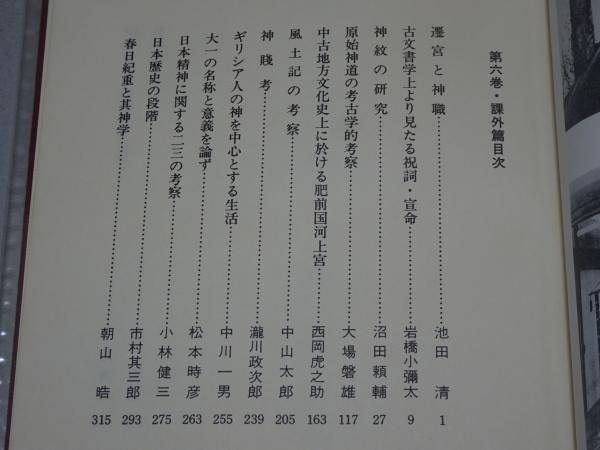 第六巻・課外篇目次
遷宮と神職……………………池田　清　1
古文書学上より見たる祝詞・宣命……………………岩橋小彌太　9
神紋の研究……………………沼田頼輔　27
原始神道の考古学的考察……………………大場磐雄　117
中古地方文化史上に於ける肥前国河上宮……………………西岡虎之助　163
風土記の考察……………………中山太郎　205
神賤考……………………瀧川政次郎　239
ギリシア人の神を中心とする生活……………………中川一男　255
大一の名称と意義を論ず……………………松本時彦　263
日本精神に関する二三の考察……………………小林健三　275
日本歴史の段階……………………市村其三郎　293
春日紀重と其神学……………………朝山　晧　315